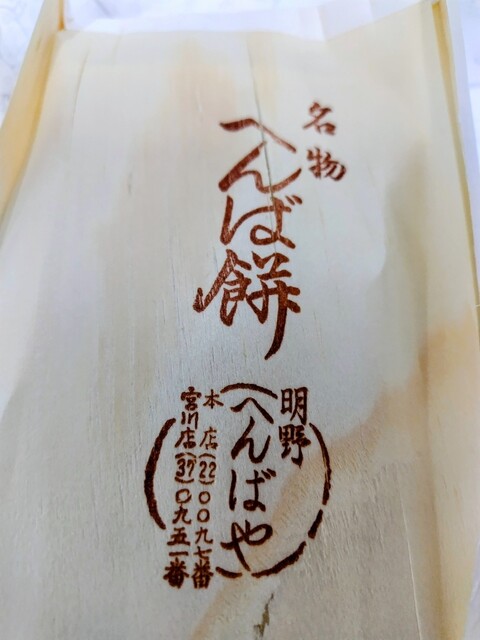 名物
へんば餅
明野
へんばや
本店(22)〇〇九七番
宮川店(37)〇九五一番